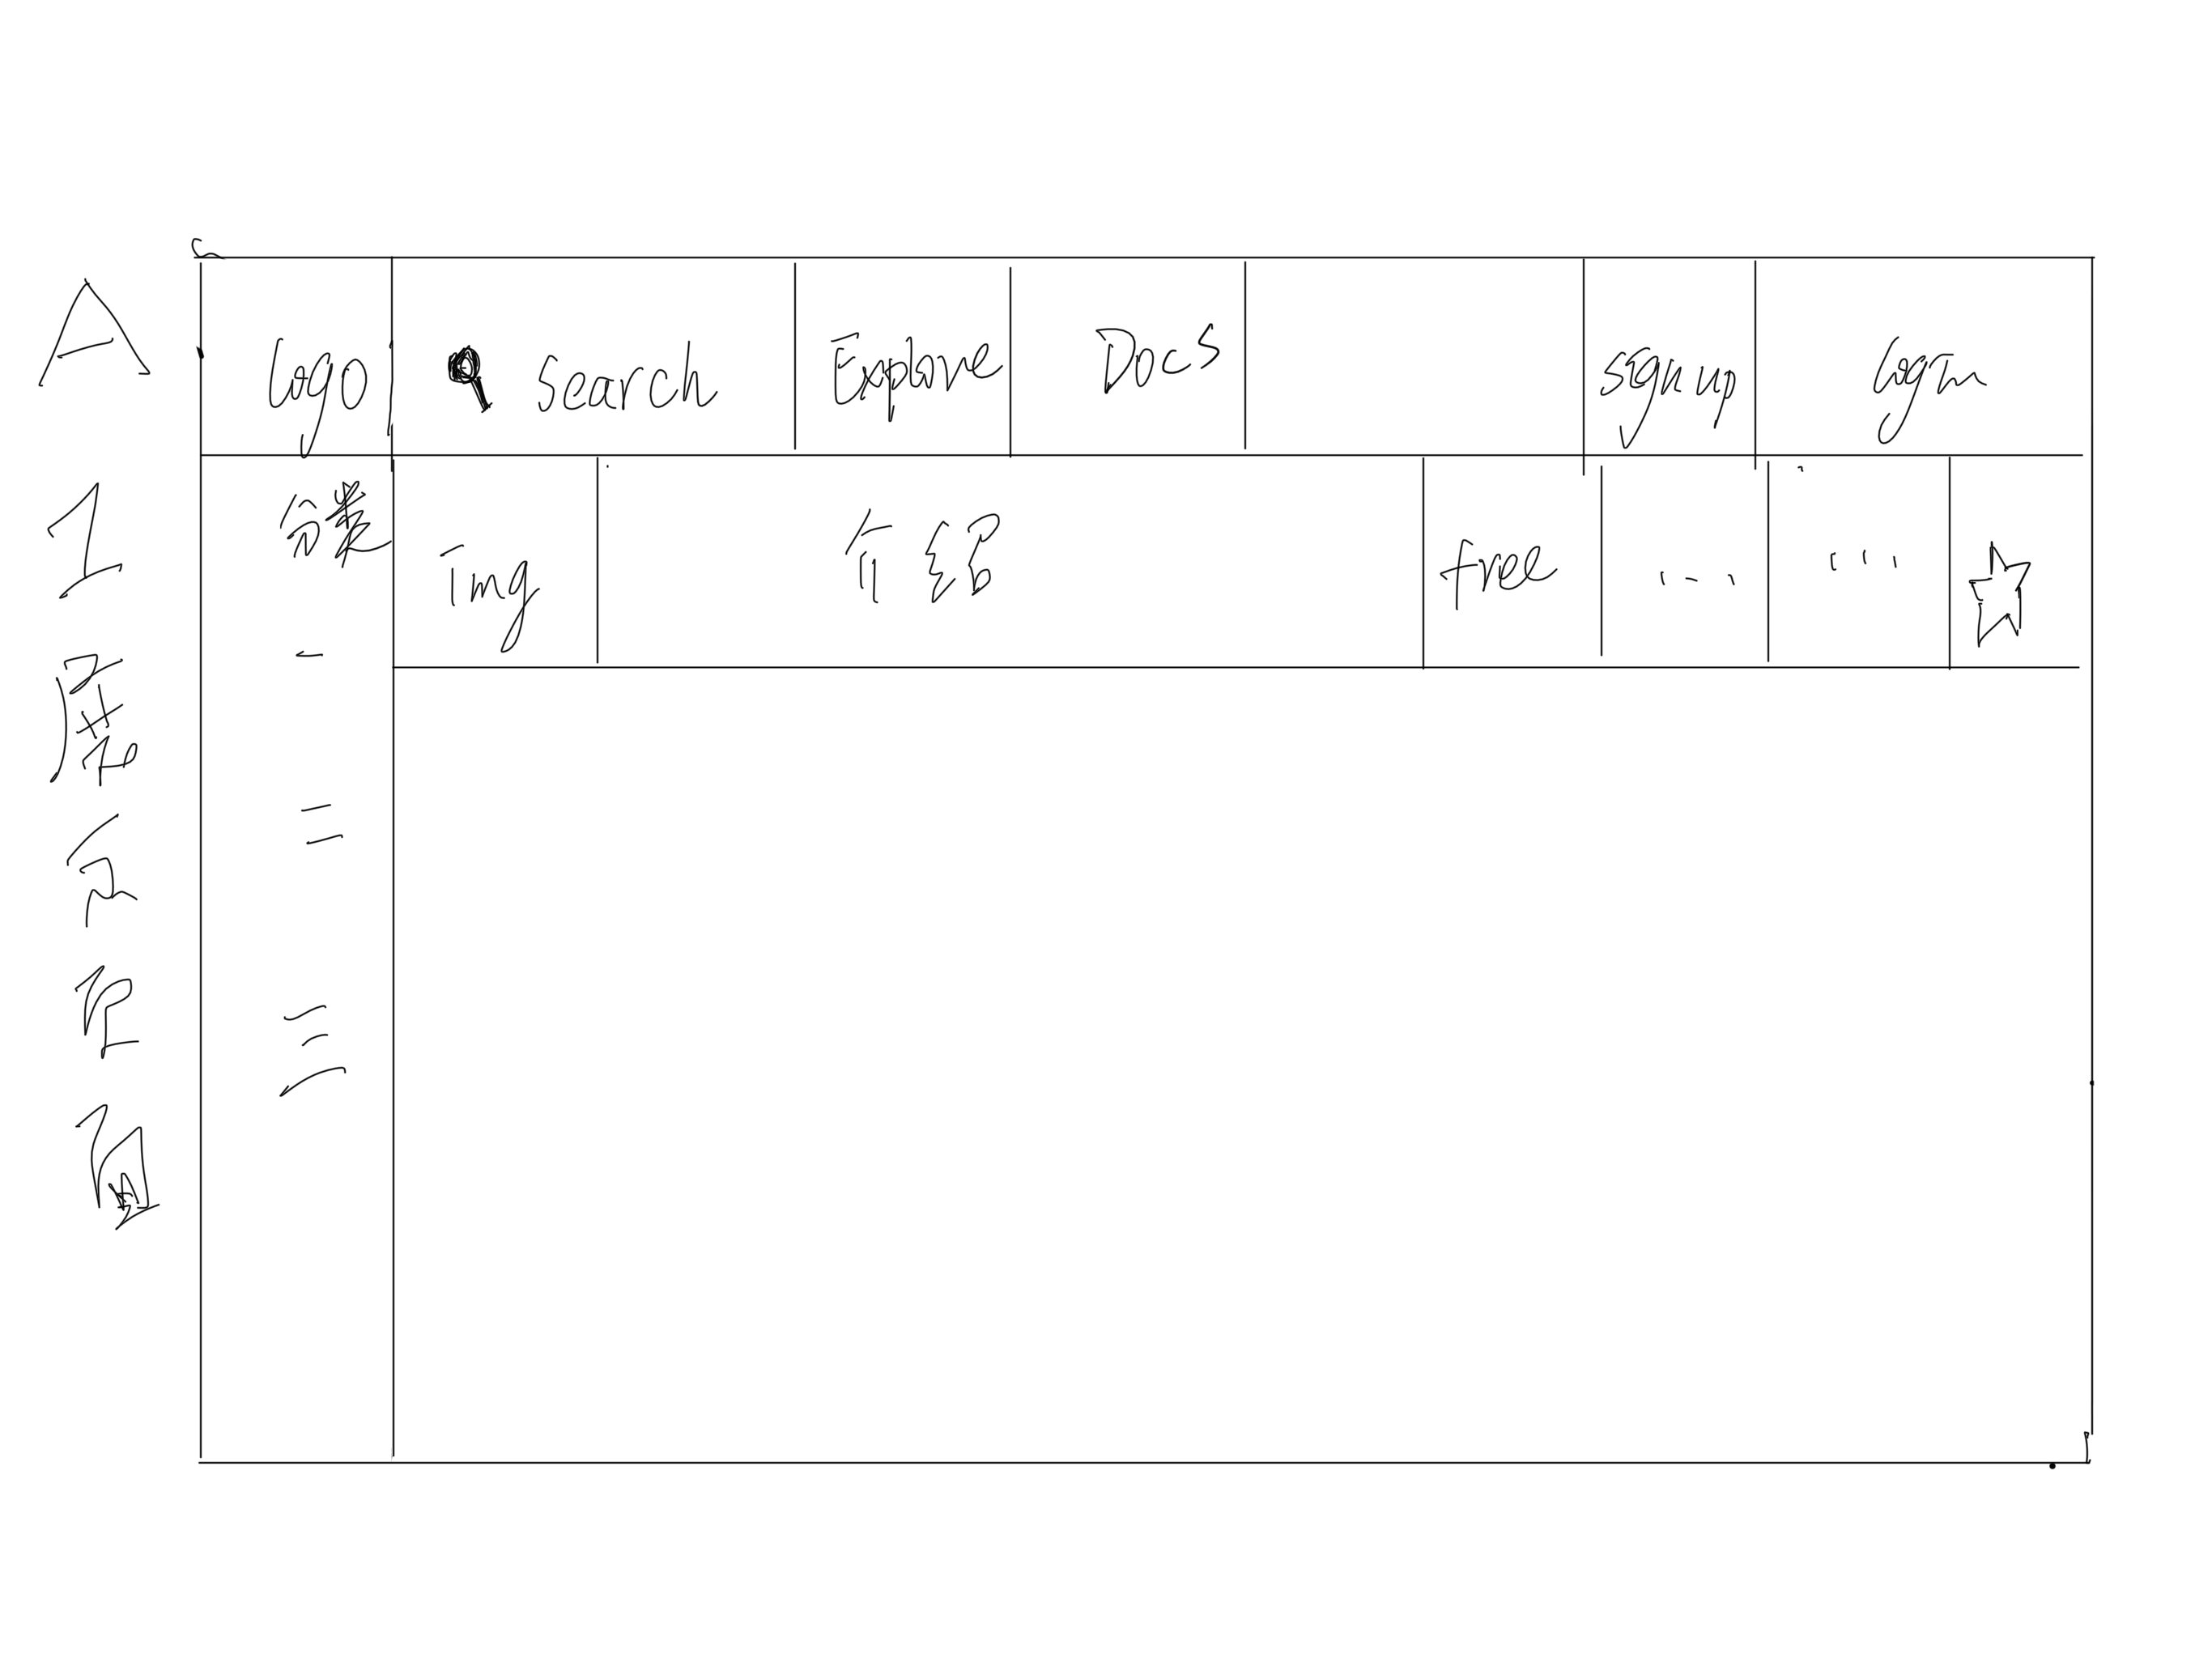 AI展示页面
logo search Explore Docs sign up login
分类 img 介绍 free ... ...
一
二
三